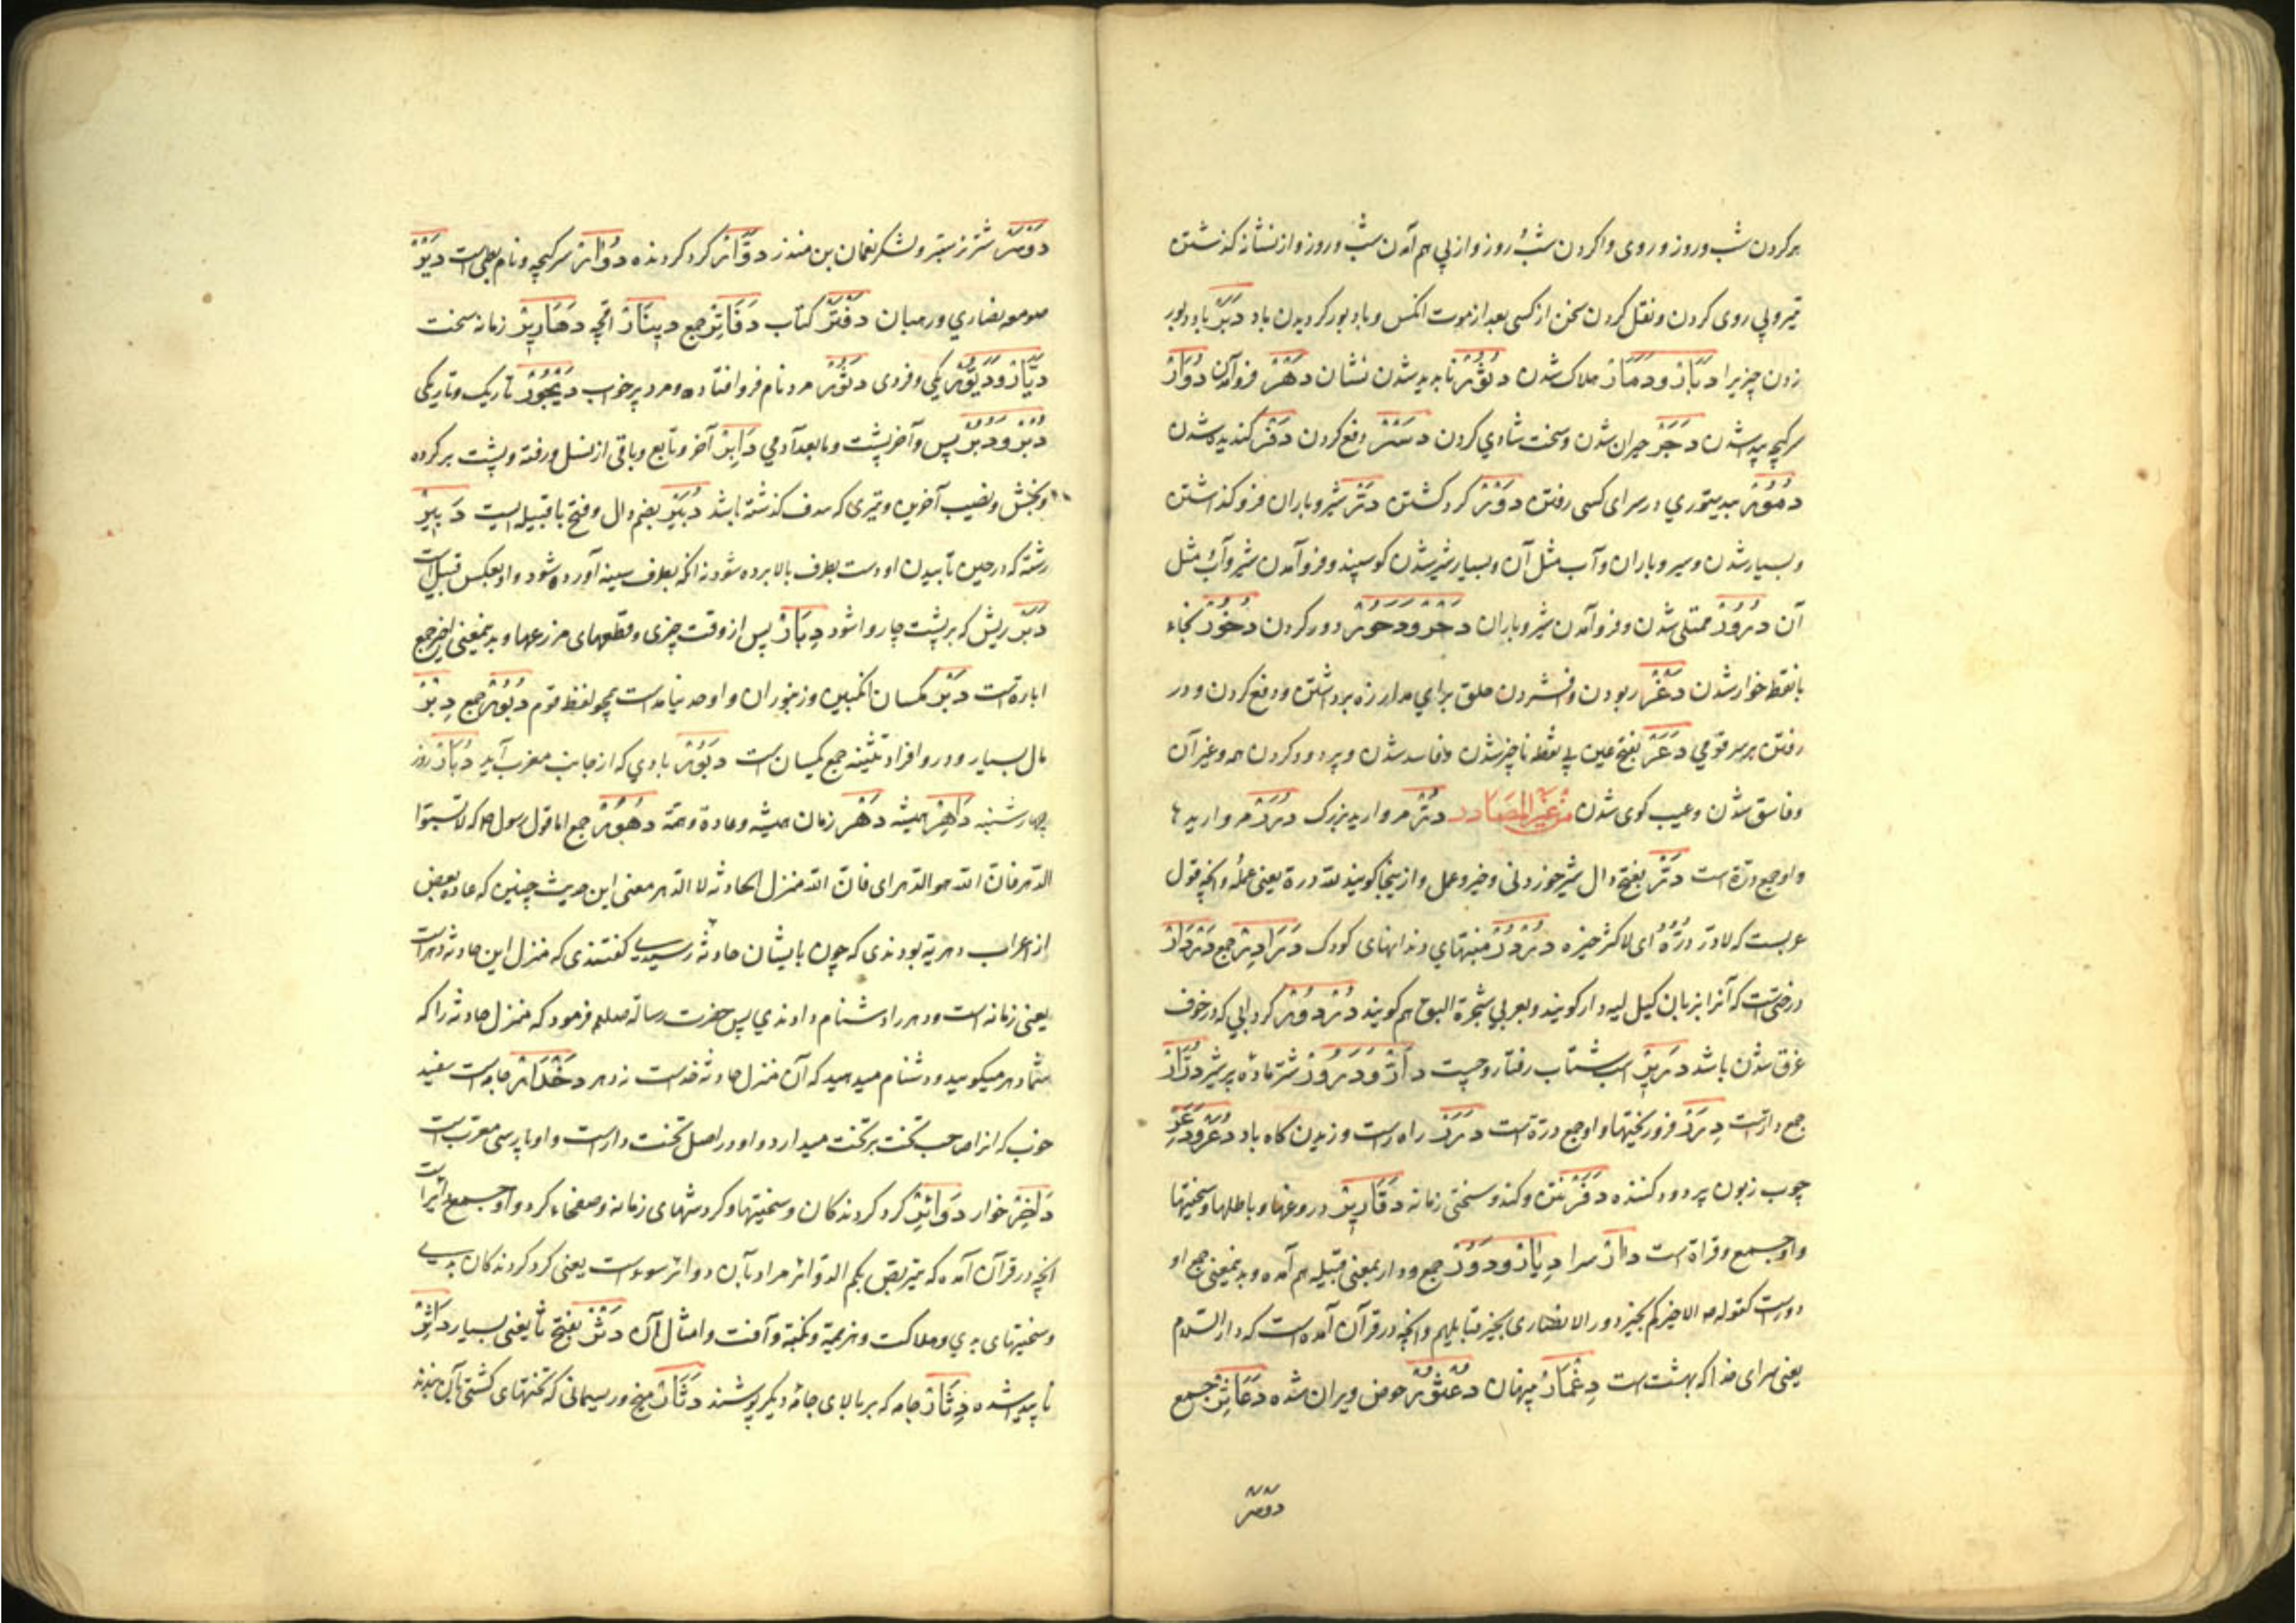 بر کردن شب و روز و روی واکردن شب و روز و از پی هم آمدن شب و روز و از نشانه گذشتن
تیر و پی روی کردن و نقل کردن سخن از کسی بعد از موت انکس و باد بور کردیدن باد دَبَرْ
زدن چیزیرا دَبَارْ و دَمَارْ هلاک شدن دُثُوْرْ ناپدید شدن نشان دَهْرْ فروآمدن دُوَارْ
سرکیچه پیدا شدن دَجَرْ حیران شدن و سخت شادی کردن دَسْرْ دفع کردن دَفَرْ کندیده شدن
دُمُوْرْ بیدستوری در سرای کسی رفتن دَوْرْ کرد کشتن دَرّْ شیر و باران فرو کذاشتن
و بسیار شدن و سیر و باران و آب مثل آن و بسیار شیر شدن کوسپند و فرو آمدن شیر و آب مثل
آن دُرُوْرْ ممتلی شدن و فرو آمدن شیر و باران دَحْرْ و دُحُوْرْ دور کردن دُخُوْرْ بخاء
با نقط خوار شدن دَغْرْ ربودن و فشردن حلق برای مدار زه برداشتن و دفع کردن و در
رفتن بر سر قومی دَعَرْ بفتح عین بی نقط ناچیز شدن و فاسد شدن و پر دود کردن همه و غیر آن
و فاسق شدن و عیب کوی شدن مِنْ غَیْرِ المَصَادِر دُرّْ مروارید بزرک دُرَرْ مرواریدها
و او جمع درّة است دَرّْ بفتح دال شیر خوردنی و خیر و عمل و از اینجا کویند لله درّه یعنی عمله و انچه قول
عربست که لا درّ درّه ای لا کثر خیره دُرْدُرْ منبتهای دندانهای کودک دَرَادِرْ جمع دَرْدَارْ
درختیست که آنرا بزبان کیل لیه دار کویند و بعربی شجرة البق هم کویند دُرْدُوْرْ کردابی که در خوف
غرق شدن باشد دَرِیْرْ اسب شتاب رفتار و چست دَارّْ و دَرُوْرْ شتر ماده پر شیر دُرَّارْ
جمع دارّست دِرَرْ فرو ریختنها و او جمع درّه است دَرَرْ راه راست و وزیدن کاه باد دَعْرْ و دَعِرْ
چوب زبون پر دود کننده دَفَرْ نتن و کند و سختی زمانه دَقَارِیْرْ دروغها و باطلها و سختیها
و او جمع دقراة است دَارْ سرا دِیَارْ و دُوْرْ جمع و دار بمعنی قبیله هم آمده و بدینمعنی جمع او
دورست کقوله ص الا اخبرکم بخیر دور الانصار ای بخیر قبایلهم و انچه در قرآن آمده است که دار السلام
یعنی سرای خدا که بهشت است دِثَارْ پنهان دُعْثُوْرْ حوض ویران شده دَعَاثِرْ جمع
دَوْسَرْ
دَوْسَرْ شتر ستبر و لشکر نعمان بن منذر دَوَّارْ کرد کردنده دُوَارْ سرکیچه و نام بعلی است دَیْرْ
صومعه نصاری و رهبان دَفْتَرْ کتاب دَفَاتِرْ جمع دِینَارْ اقچه دَهَارِیْرْ زمانه سخت
دَیَّارْ و دَیُّوْرْ یکی و فردی دَثُوْرْ مرد نام فرو افتاده و مرد پر خواب دَیْجُوْرْ تاریک و تاریکی
دُبُرْ و دُبْرْ پس و آخر پشت و ما بعد آدمی دَابِرْ آخر و تابع و باقی از نسل و رفته و پشت بر کرده
و بخش و نصیب آخرین و تیری که از هدف کذشته باشد دُبَیْرْ بضم دال و فتح با قبیله ایست دَبِیْرْ
رشته که در حین تابیدن او دست بطرف بالا برده شود نه انکه بطرف سینه آورده شود و او بعکس قبیل است
دَبَرْ ریش که بر پشت چاروا شود دِبَارْ پس از وقت چیزی و قطعهای مزرعها و بدینمعنی اخیر جمع
دباره است دَبْرْ مکسان انکبین و زنبوران و او جمع نیامده است همچو لفظ قوم دُبُوْرْ جمع دِبْرْ
مال بسیار و در و افراد تثنیه جمع یکسان است دَبُوْرْ بادی که از جانب مغرب آید دُبَارْ روز
چهار شنبه دَاهِرْ همیشه دَهْرْ زمان همیشه و عادة و همّه دُهُوْرْ جمع اما قول رسول ص که لا تسبّوا
الدّهر فانّ الله هو الدّهر ای فانّ الله منزل الحادثه لا الدّهر معنی این حدیث چنین که عاده بعض
از اعراب دهریه بودندی که چون بایشان حادثه رسیدی کفتندی که منزل این حادثه دهر است
یعنی زمانه است و دهر را دشنام دادندی پس حضرت رسالة صلعم فرمود که منزل حادثه را که
شما دهر میکویید و دشنام میدهید که آن منزل حادثه خداست نه دهر دَخْدَارْ جامه است سفید
خوب که انرا صاحب تخت بر تخت میدارد و او در اصل تخت دار است و او پارسی معرب است
دَاخِرْ خوار دَوَائِرْ کرد کردندکان و سختیها و کردشهای زمانه و صفحهاء کرد و او جمع دایره است
انچه در قرآن آمده که یتربّص بکم الدوائر مراد بآن دوائر سوء است یعنی کرد کردندکان بدی
و سختیهای بدی و هلاکت و هزیمة و نکبة و آفت و امثال آن دَثَرْ بفتح ثا یعنی بسیار دَاثِرْ
ناپید شده دِثَارْ جامه که بر بالای جامه دیکر پوشند دِسَارْ میخ و ریسمانی که تختهای کشتی بآن بندند